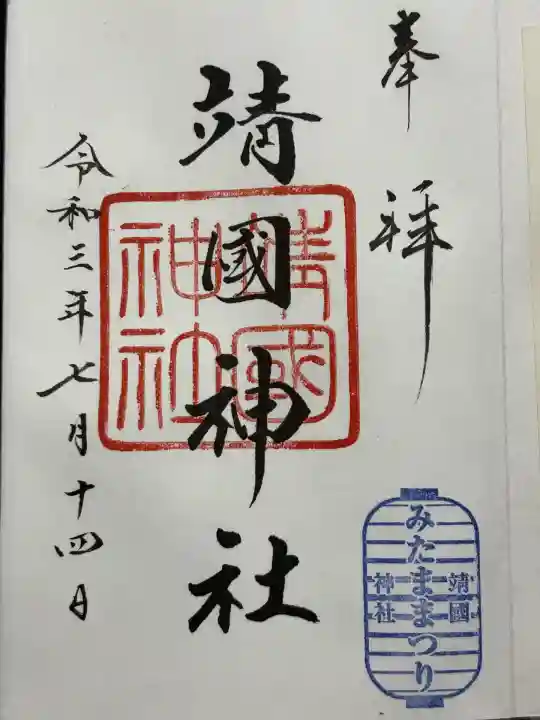 奉拝
靖國神社
靖國神社
令和三年七月十四日
みたままつり
靖國
神社